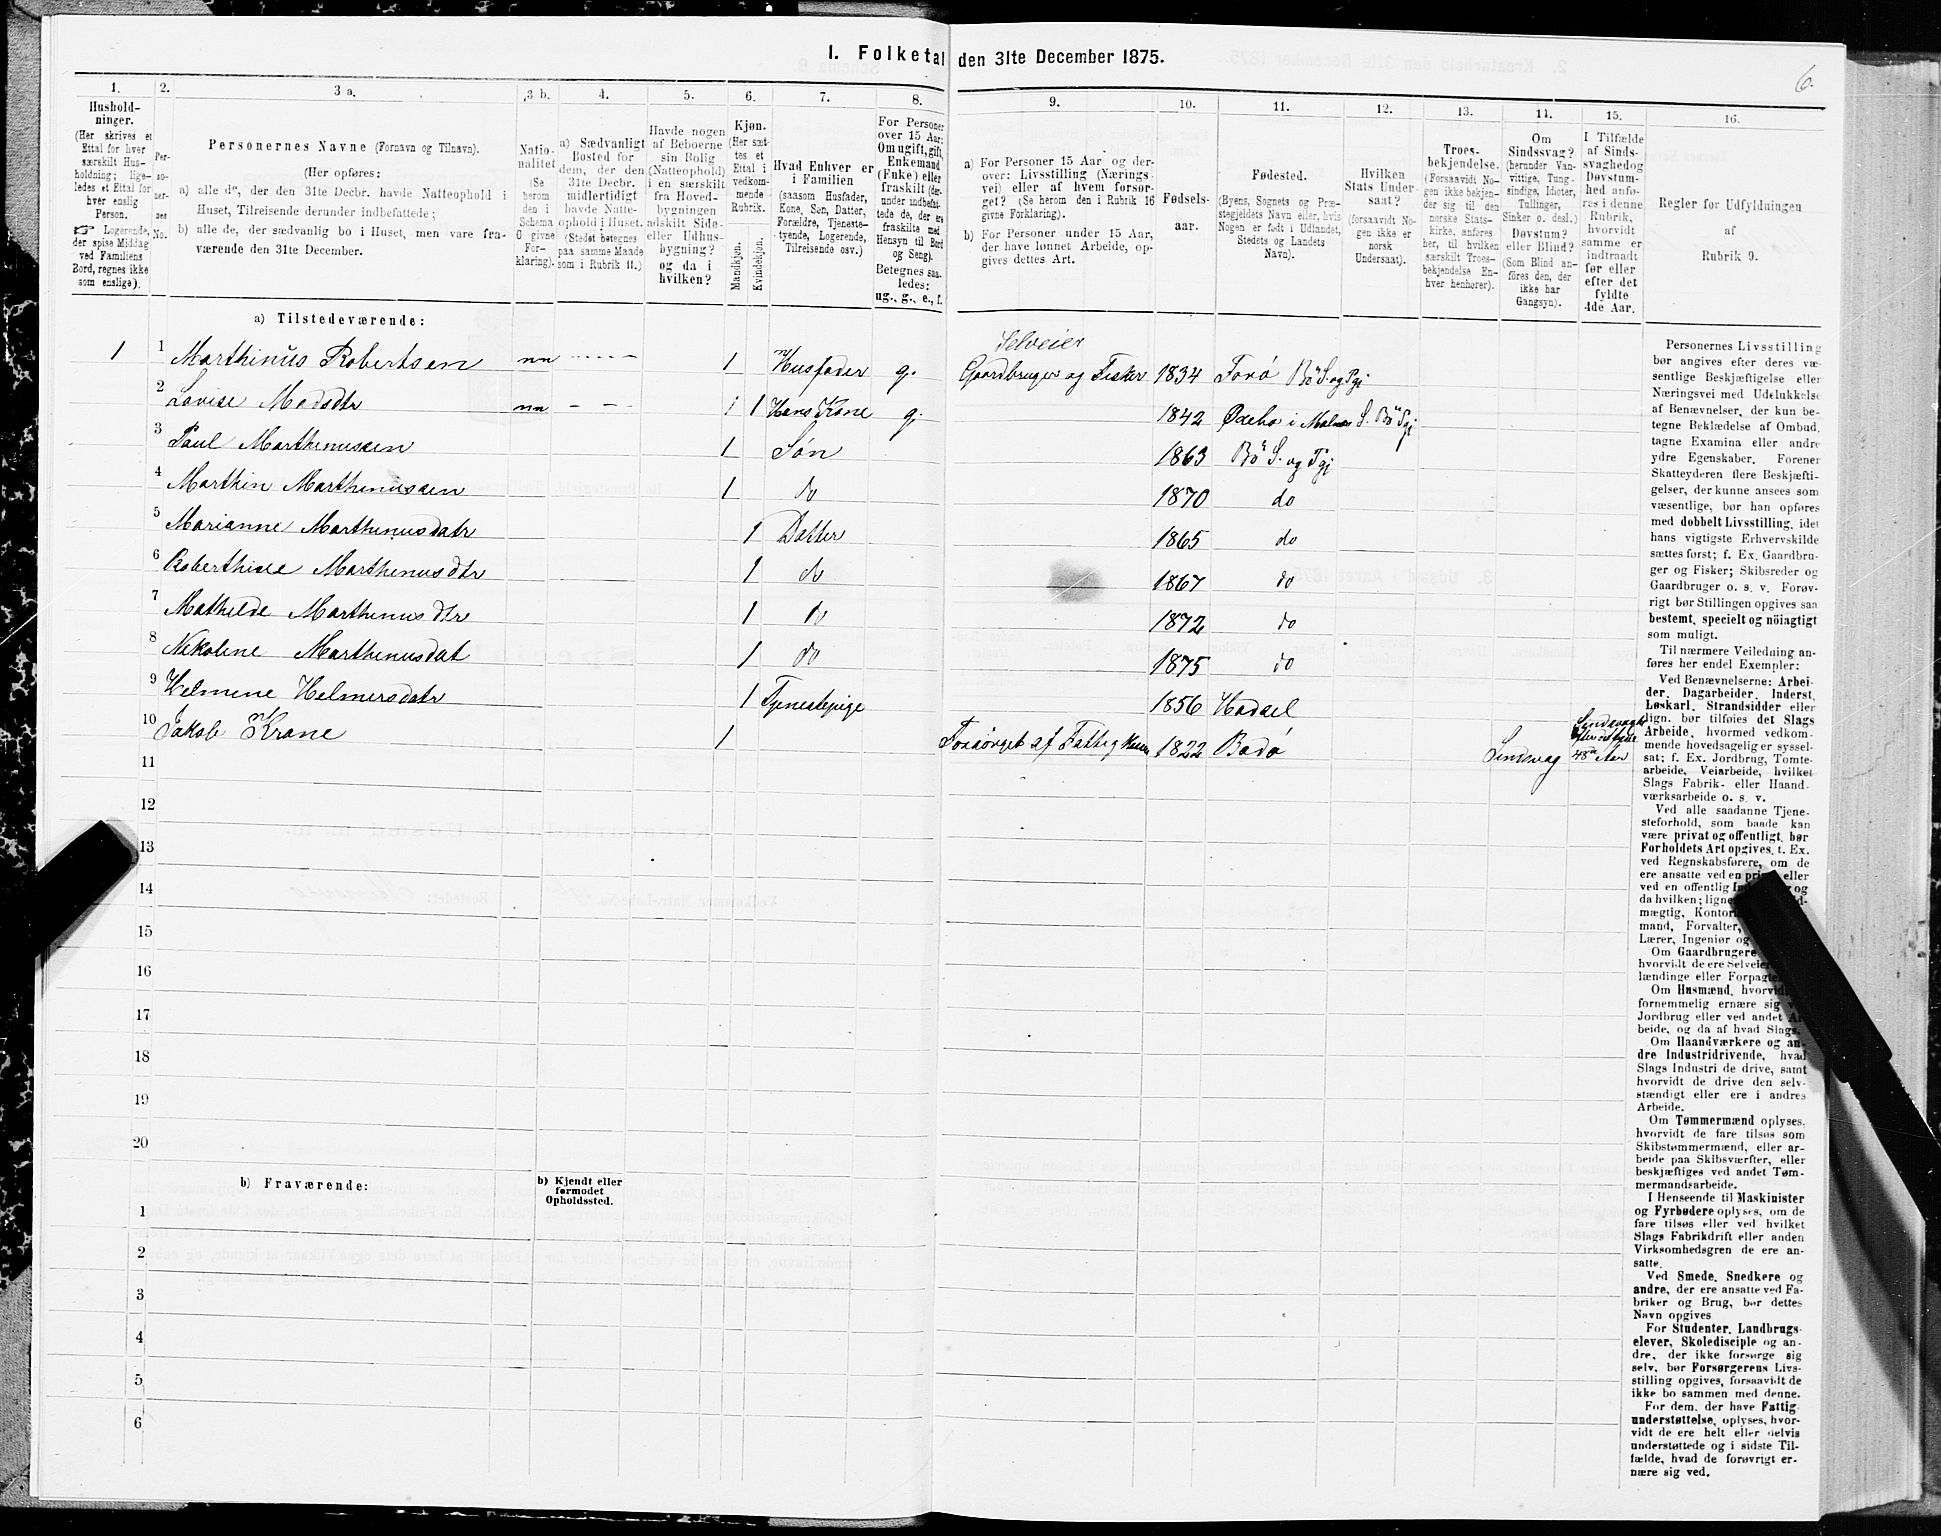 I. Folketal den 31te December 1875.
6.
1. 2. 3 a. 3 b. 4. 5. 6. 7. 8. 9. 10. 11. 12. 13. 14. 15. 16.
Husholdninger.
(Her skrives et
Ettal for hver
særskilt Husholdning;
ligeledes et Ettal for
hver enslig
Person.
☞ Logerende,
der spise Middag
ved Familiens
Bord, regnes ikke
som enslige).
Personernes No.
Personernes Navne (Fornavn og Tilnavn).
(Her opføres:
a) alle de, der den 31te Decbr. havde Natteophold i
Huset, Tilreisende derunder indbefattede;
b) alle de, der sædvanlig bo i Huset, men vare fraværende den 31te December.
Nationalitet
(Se
herom
den i
Schema
O givne
Forklaring).
a) Sædvanligt
Bosted for
dem, der den
31te Decbr.
midlertidigt
havde Natteophold i Huset.
(Stedet betegnes
paa samme Maade
som i Rubrik 11.)
Havde nogen
af Beboerne
sin Bolig
(Natteophold)
i en særskilt
fra Hovedbygningen
adskilt Side-
eller Udhusbygning?
og da i
hvilken?
Kjøn.
(Her sættes et
Ettal i
vedkommende
Rubrik.
Mandkjøn.
Kvindekjøn.
Hvad Enhver er
i Familien
(saasom Husfader,
Kone, Søn, Datter,
Forældre, Tjenestetyende, Logerende,
Tilreisende osv.)
For Personer
over 15 Aar:
Om ugift, gift,
Enkemand
(Enke) eller
fraskilt (derunder indbefattede de, der ere
fraskilte med
Hensyn til Bord
og Seng).
Betegnes saaledes:
ug., g., e., f.
a) For Personer 15 Aar og derover: Livsstilling (Næringsvei) eller af hvem forsørget? (Se herom den i Rubrik 16
givne Forklaring).
b) For Personer under 15 Aar,
der have lønnet Arbeide, opgives dettes Art.
Fødselsaar.
Fødested.
(Byens, Sognets og Præstegjeldets Navn eller, hvis
Nogen er født i Udlandet,
Stedets og Landets
Navn).
Hvilken
Stats Undersaat?
(forsaavidt Nogen ikke er
norsk
Undersaat).
Troesbekjendelse.
(Forsaavidt Nogen ikke bekjender sig til den
norske Statskirke, anføres
her, til hvilken
særskilt Troesbekjendelse Enhver henhører).
Om
Sindssvag?
(herunder Vanvittige, Tungsindige, Idioter,
Tullinger,
Sinker o. desl.)
Døvstum?
eller Blind?
(Som Blind anføres den, der
ikke har
Gangsyn).
I Tilfælde
af Sindssvaghed og
Døvstumhed anføres i denne
Rubrik,
hvorvidt
samme er
indtraadt
før eller
efter det
fyldte
4de Aar.
Regler for Udfyldningen
af
Rubrik 9.
a) Tilstedeværende:
Selveier
1 1 Marthinus Robertsen nn 1 Husfader g. Gaardbruger og Fisker 1834 Forø Bø S. og Pgj
2 Lovise Madsdtr nn 1 Hans Kone g. 1842 i Malnes S. Bø Pgj
3 Paul Marthinussen 1 Søn 1863 Bø S. og Pgj
4 Marthin Marthinussen 1 do 1870 do
5 Marianne Marthinusdatr 1 Datter 1865 do
6 Marthinusdtr 1 do 1867 do
7 Mathilde Marthinusdtr 1 do 1872 do
8 Nekoline Marthinusdat 1 do 1875 do
9 Helmine Helmersdatr 1 Tjenestepige 1856 Hadsel
10 Jakob Krane 1 Forsørget af Fattig 1822 Bodø Sindsvag Sindsvag efter det fyldte 4de Aar
11
12
13
14
15
16
17
18
19
20
b) Fraværende:
b) Kjendt eller
formodet
Opholdssted.
1
2
3
4
5
6
Personernes Livsstilling
bør angives efter deres væsentlige Beskjæftigelse eller
Næringsvei med Udelukkelse
af Benævnelser, der kun betegne Beklædelse af Ombud,
tagne Examina eller andre
ydre Egenskaber. Forener
Skatteyderen flere Beskjæftigelser, der kunne ansees som
væsentlige, bør han opføres
med dobbelt Livsstilling, idet
hans vigtigste Erhvervskilde
sættes først; f. Ex. Gaardbruger og Fisker; Skibsreder og
Gaardbruger o. s. v. Forøvrigt bør Stillingen opgives saa
bestemt, specielt og nöiagtigt
som muligt.
Til nærmere Veiledning anføres her endel Exempler:
Ved Benævnelserne: Arbeider, Dagarbeider, Inderst,
Løskarl, Strandsidder eller
lign. bør tilføies det Slags
Arbeide, hvormed vedkommende hovedsagelig er sysselsat; f. Ex. Jordbrug, Tomtearbeide, Veiarbeide, hvilket
Slags Fabrik- eller Haandværksarbeide o. s. v.
Ved alle saadanne Tjenesteforhold, som baade kan
være privat og offentligt, bør
Forholdets Art opgives, t. Ex.
ved Regnskabsførere, om de
ere ansatte ved en eller
ved en offentlig og
da hvilken;
mægtig,
mand, Forvalter,
Lærer, Ingeniør og
Om Gaardbrugere
hvorvidt de ere
lændinge eller
Om Husmænd, hvorvidt
fornemmelig ernære sig
Jordbrug eller ved andet Arbeide, og da af hvad Slags.
Om Haandværkere og andre Industridrivende, hvad
Slags Industri de drive, samt
hvorvidt de drive den selvstændigt eller ere i andres
Arbeide.
Om Tømmermænd oplyses,
hvorvidt de fare tilsøs som
Skibstømmermænd, eller arbeide paa Skibsværfter, eller
beskjæftiges ved andet Tømmermandsarbeide.
I Henseende til Maskinister
og Fyrbødere oplyses, om de
fare tilsøs eller ved hvilket
Slags Fabrikdrift eller anden
Virksomhedsgren de ere ansatte.
Ved Smede, Snedkere og
andre, der ere ansatte ved Fabriker og Brug, bør dettes
Navn opgives
For Studenter, Landbrugselever, Skoledisciple og andre, der ikke forsørge sig
selv, bør Forsørgerens Livsstilling opgives, forsaavidt de
ikke bo sammen med denne.
For dem, der have Fattigunderstøttelse, oplyses, hvorvidt de ere helt eller delvis
understøttede og i sidste Tilfælde, hvad de forøvrigt ernære sig ved.